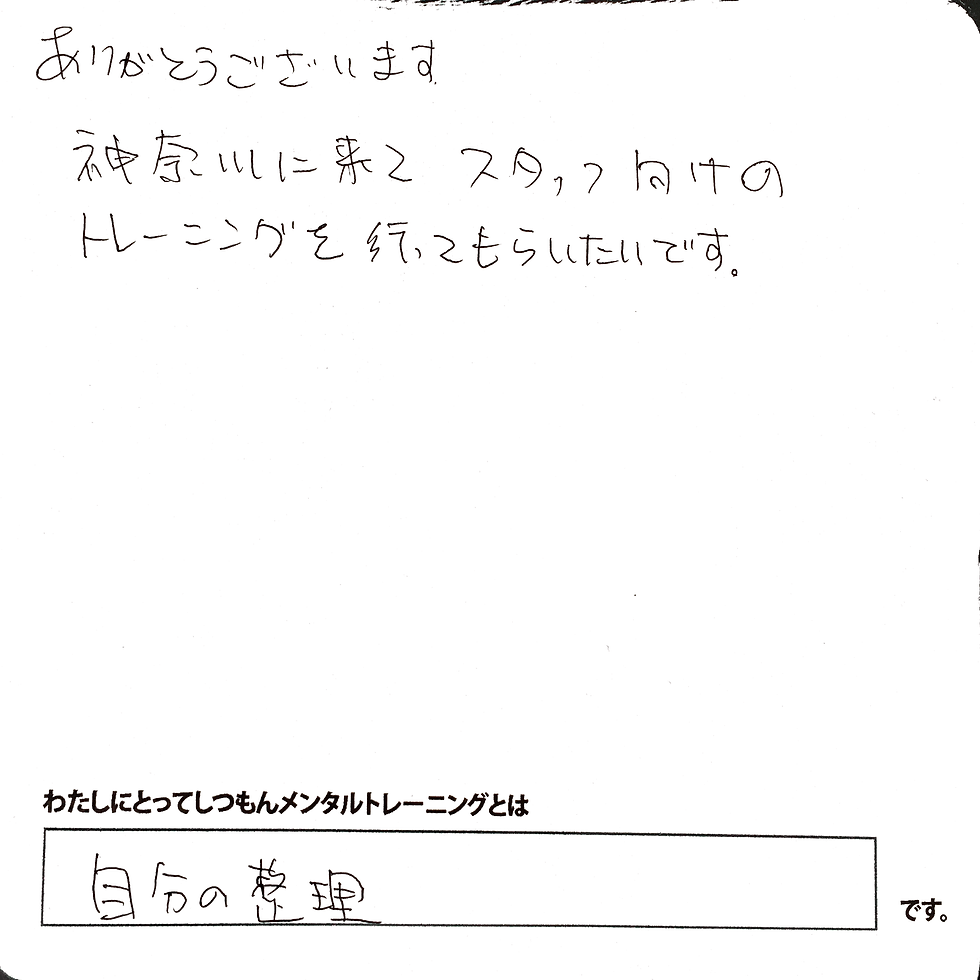 ありがとうございます
神奈川に来て スタッフ向けの
トレーニングを行ってもらいたいです。
わたしにとってしつもんメンタルトレーニングとは
自分の整理
です。